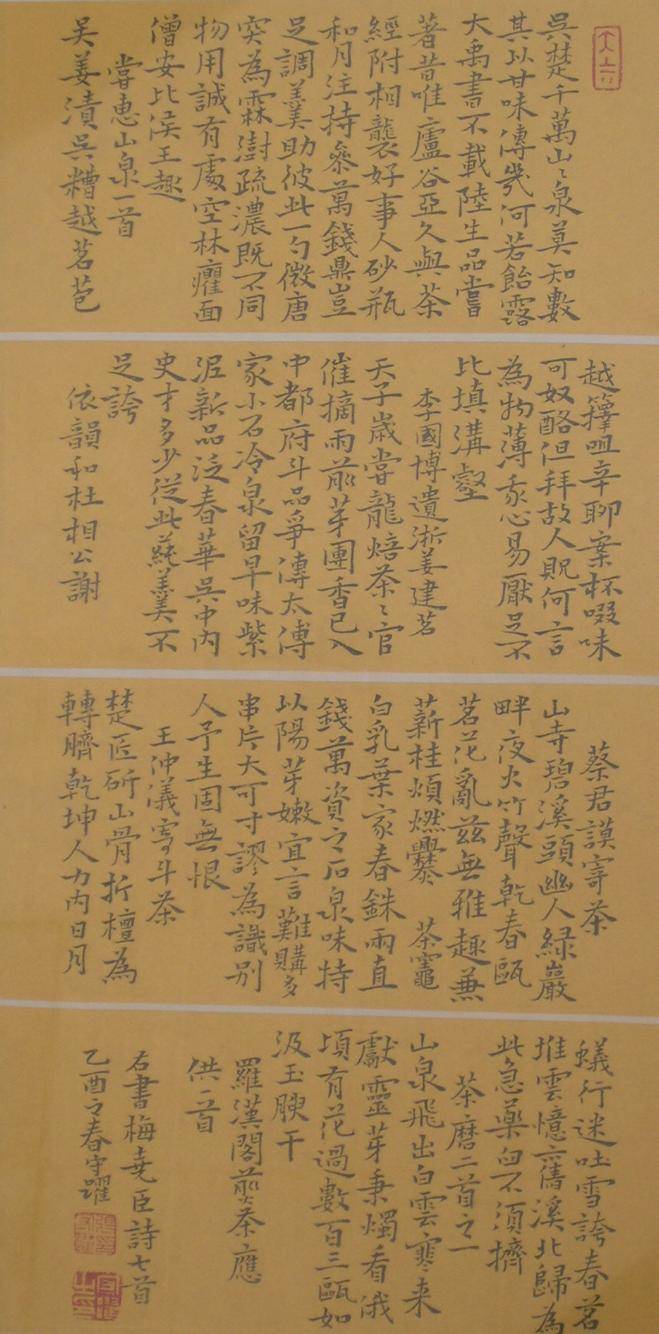 吳楚千萬山〻泉莫知數
其以甘味傳幾何若飴露
大禹書不載陸生品嘗
著昔唯廬谷亞久與茶
經附相襲好事人砂瓶
和月注持參萬錢鼎豈
足調羹助彼此一勺微唐
突為霖澍疏濃既不同
物用誠有處空林癯面
僧安比侯王趣
嘗惠山泉一首
吳姜漬吳糟越茗苞
越籜咀辛聊案杯啜味
可奴酪但拜故人貺何言
為物薄我心易厭足不
比填溝壑
李國博遺浙姜建茗
天子歲嘗龍焙茶〻官
催摘雨前芽團香已入
中都府斗品爭傳太傅
家小石冷泉留早味紫
泥新品泛春華吳中內
史才多少從此蒓羹不
足誇
依韻和杜相公謝
蔡君謨寄茶
山寺碧溪頭幽人綠巖
畔夜火竹聲乾春甌
茗花亂茲無雅趣兼
薪桂煩燃爨 茶竈
白乳葉家春銖兩直
錢萬資之石泉味特
以陽芽嫩宜言難購多
串片大可寸謬為識別
人予生固無恨
王仲儀寄斗茶
楚匠斫山骨折檀為
轉臍乾坤人力內日月
蟻行迷吐雪誇春茗
堆雲憶舊溪北歸為
此急藥臼不須擠
茶磨二首之一
山泉飛出白雲寒來
獻靈芽秉燭看俄
頃有花過數百三甌如
汲玉腴干
羅漢閣煎茶應
供二首
右書梅堯臣詩七首
乙酉之春守躍